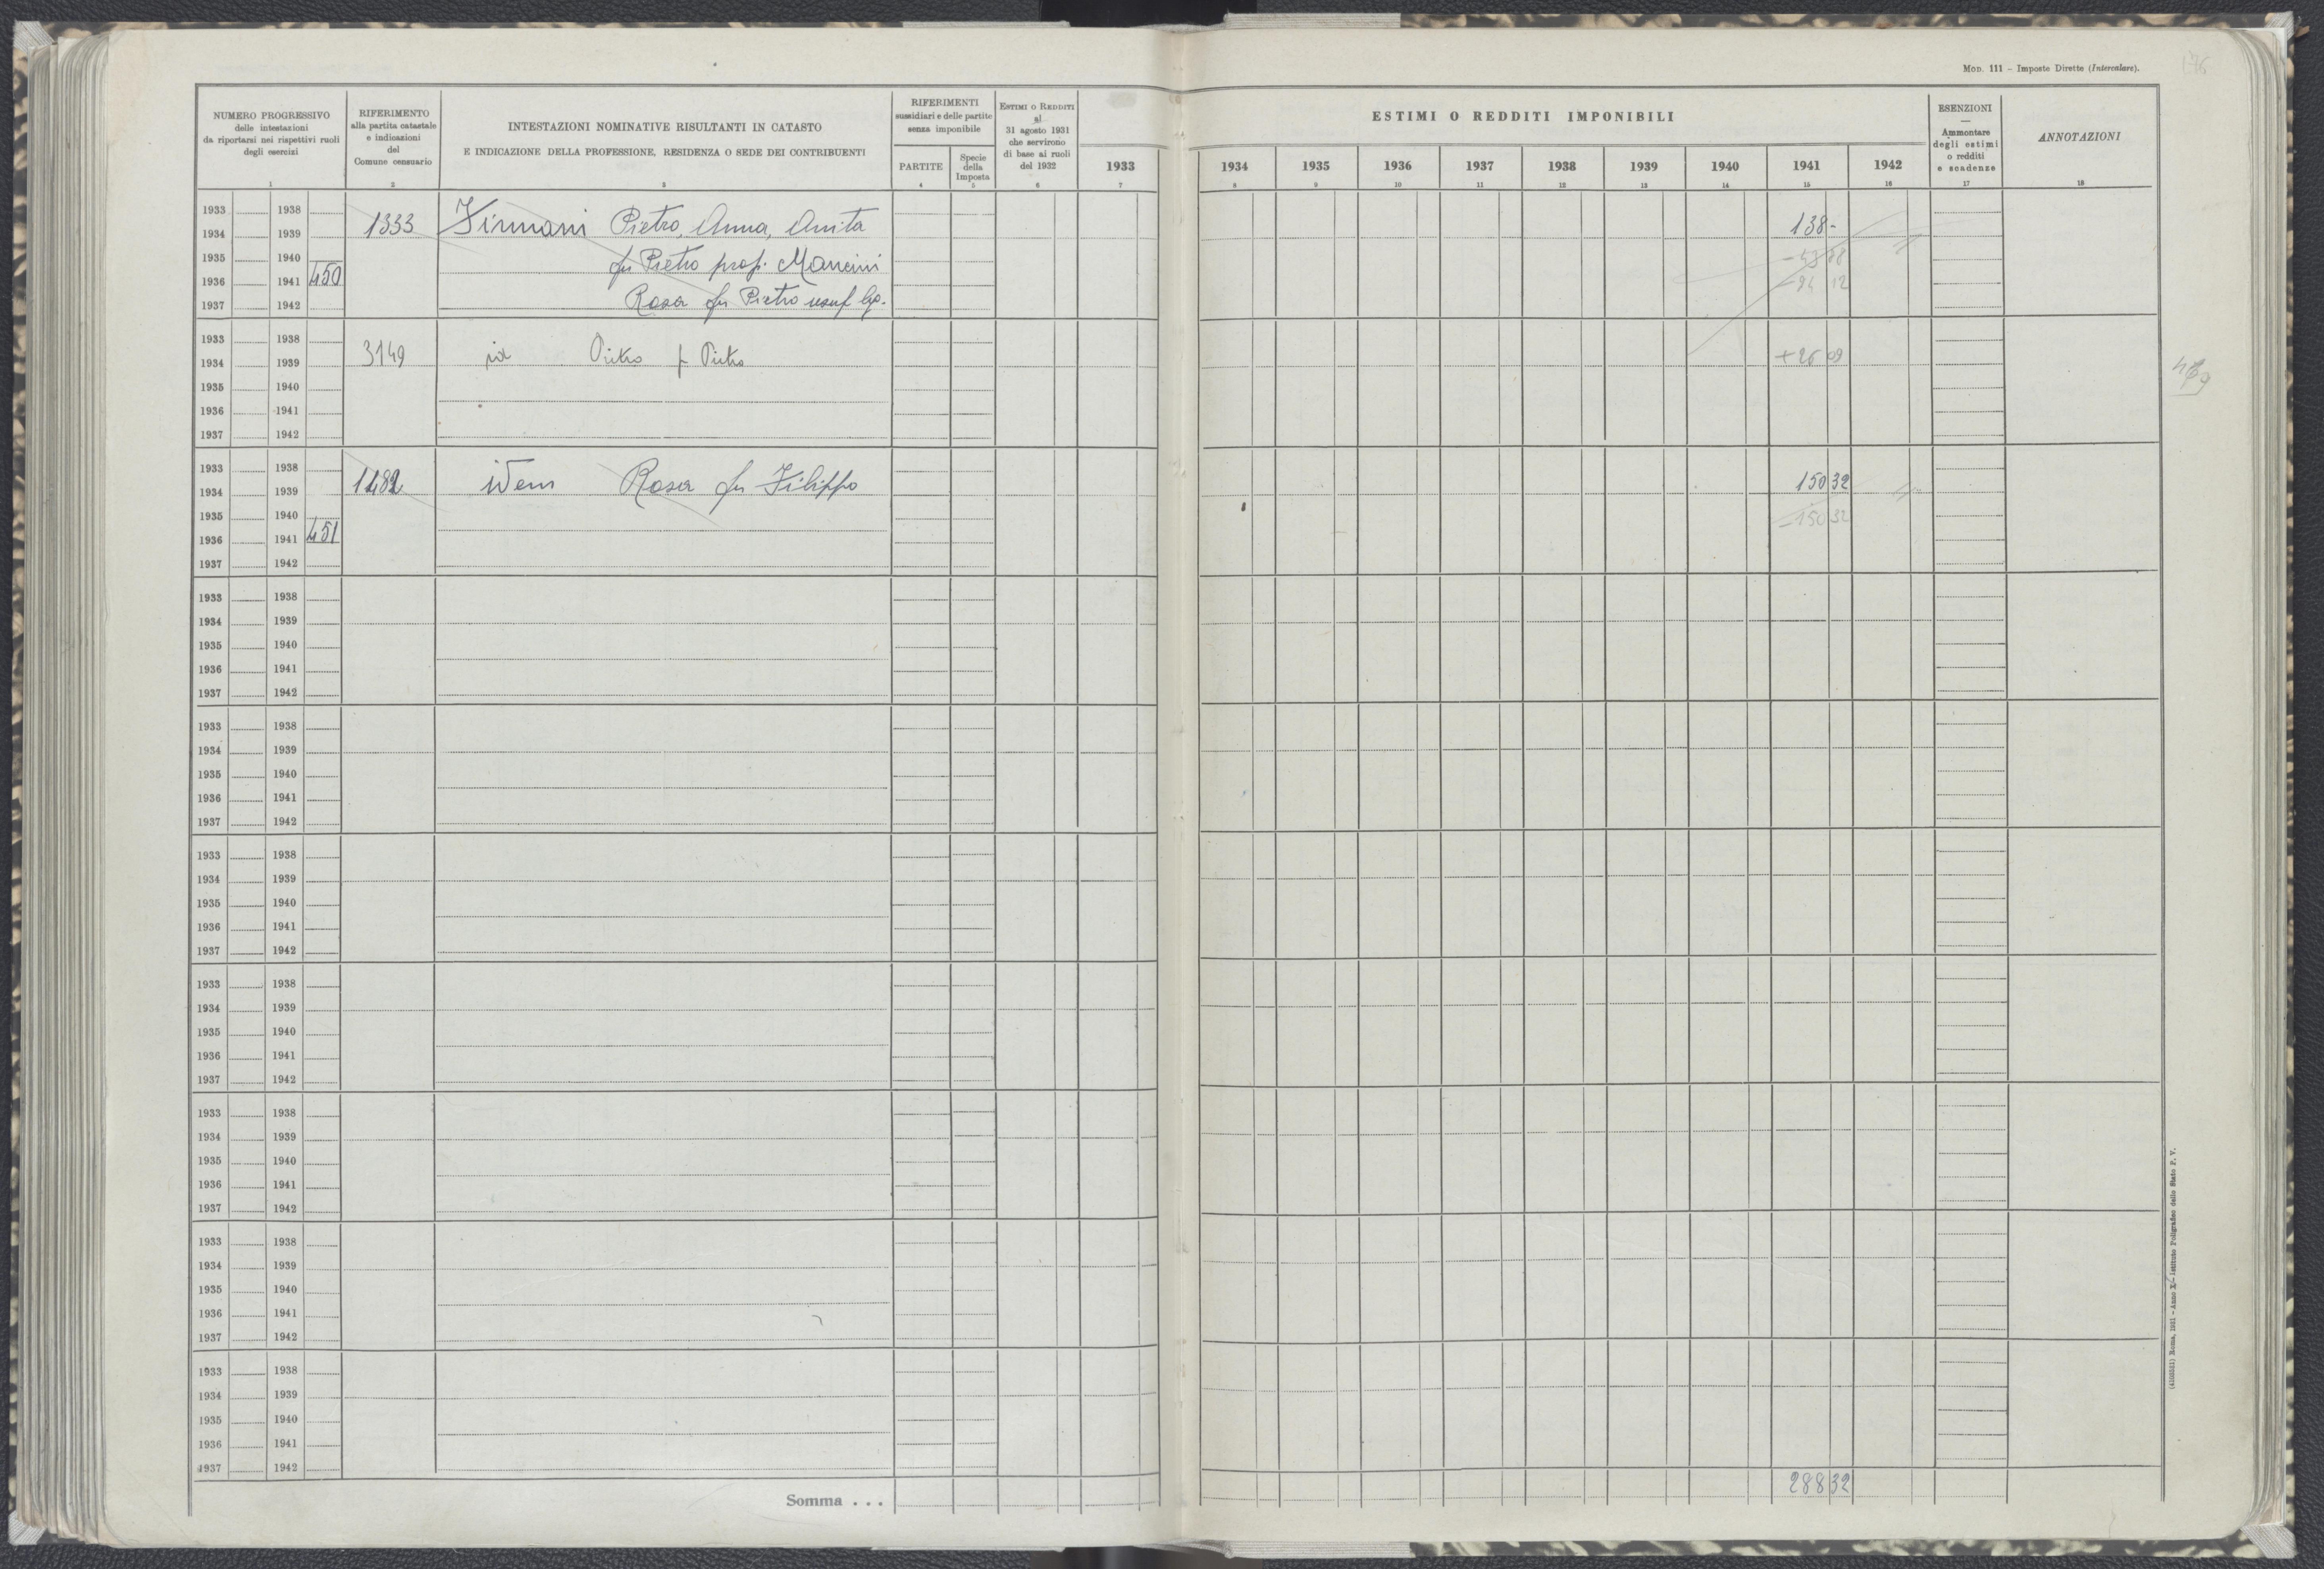 Mod. 111 – Imposte Dirette (Intercalare).
176
NUMERO PROGRESSIVO
delle intestazioni
da riportarsi nei rispettivi ruoli
degli esercizi
RIFERIMENTO
alla partita catastale
e indicazioni
del
Comune censuario
INTESTAZIONI NOMINATIVE RISULTANTI IN CATASTO
E INDICAZIONE DELLA PROFESSIONE, RESIDENZA O SEDE DEI CONTRIBUENTI
RIFERIMENTI
sussidiari e delle partite
senza imponibile
PARTITE
Specie
della
Imposta
Estimi o Redditi
al
31 agosto 1931
che servirono
di base ai ruoli
del 1932
ESTIMI O REDDITI IMPONIBILI
1933 1934 1935 1936 1937 1938 1939 1940 1941 1942
ESENZIONI
—
Ammontare
degli estimi
o redditi
e scadenze
ANNOTAZIONI
1 2 3 4 5 6 7 8 9 10 11 12 13 14 15 16 17 18
1933 1938
1934 1939 1333 Firmani Pietro, Anna, Anita 138 -
1935 1940 fu Pietro prop. Mancini
1936 1941 450 12
1937 1942 Rosa fu Pietro usuf
1933 1938
1934 1939 3149 id Pietro fu Pietro + 26 09
1935 1940
1936 1941
1937 1942
1933 1938
1934 1939 1482 idem Rosa fu Filippo 150 32
1935 1940 - 150 32
1936 1941 451
1937 1942
1933 1938
1934 1939
1935 1940
1936 1941
1937 1942
1933 1938
1934 1939
1935 1940
1936 1941
1937 1942
1933 1938
1934 1939
1935 1940
1936 1941
1937 1942
1933 1938
1934 1939
1935 1940
1936 1941
1937 1942
1933 1938
1934 1939
1935 1940
1936 1941
1937 1942
1933 1938
1934 1939
1935 1940
1936 1941
1937 1942
1933 1938
1934 1939
1935 1940
1936 1941
1937 1942
Somma . . . 288 32